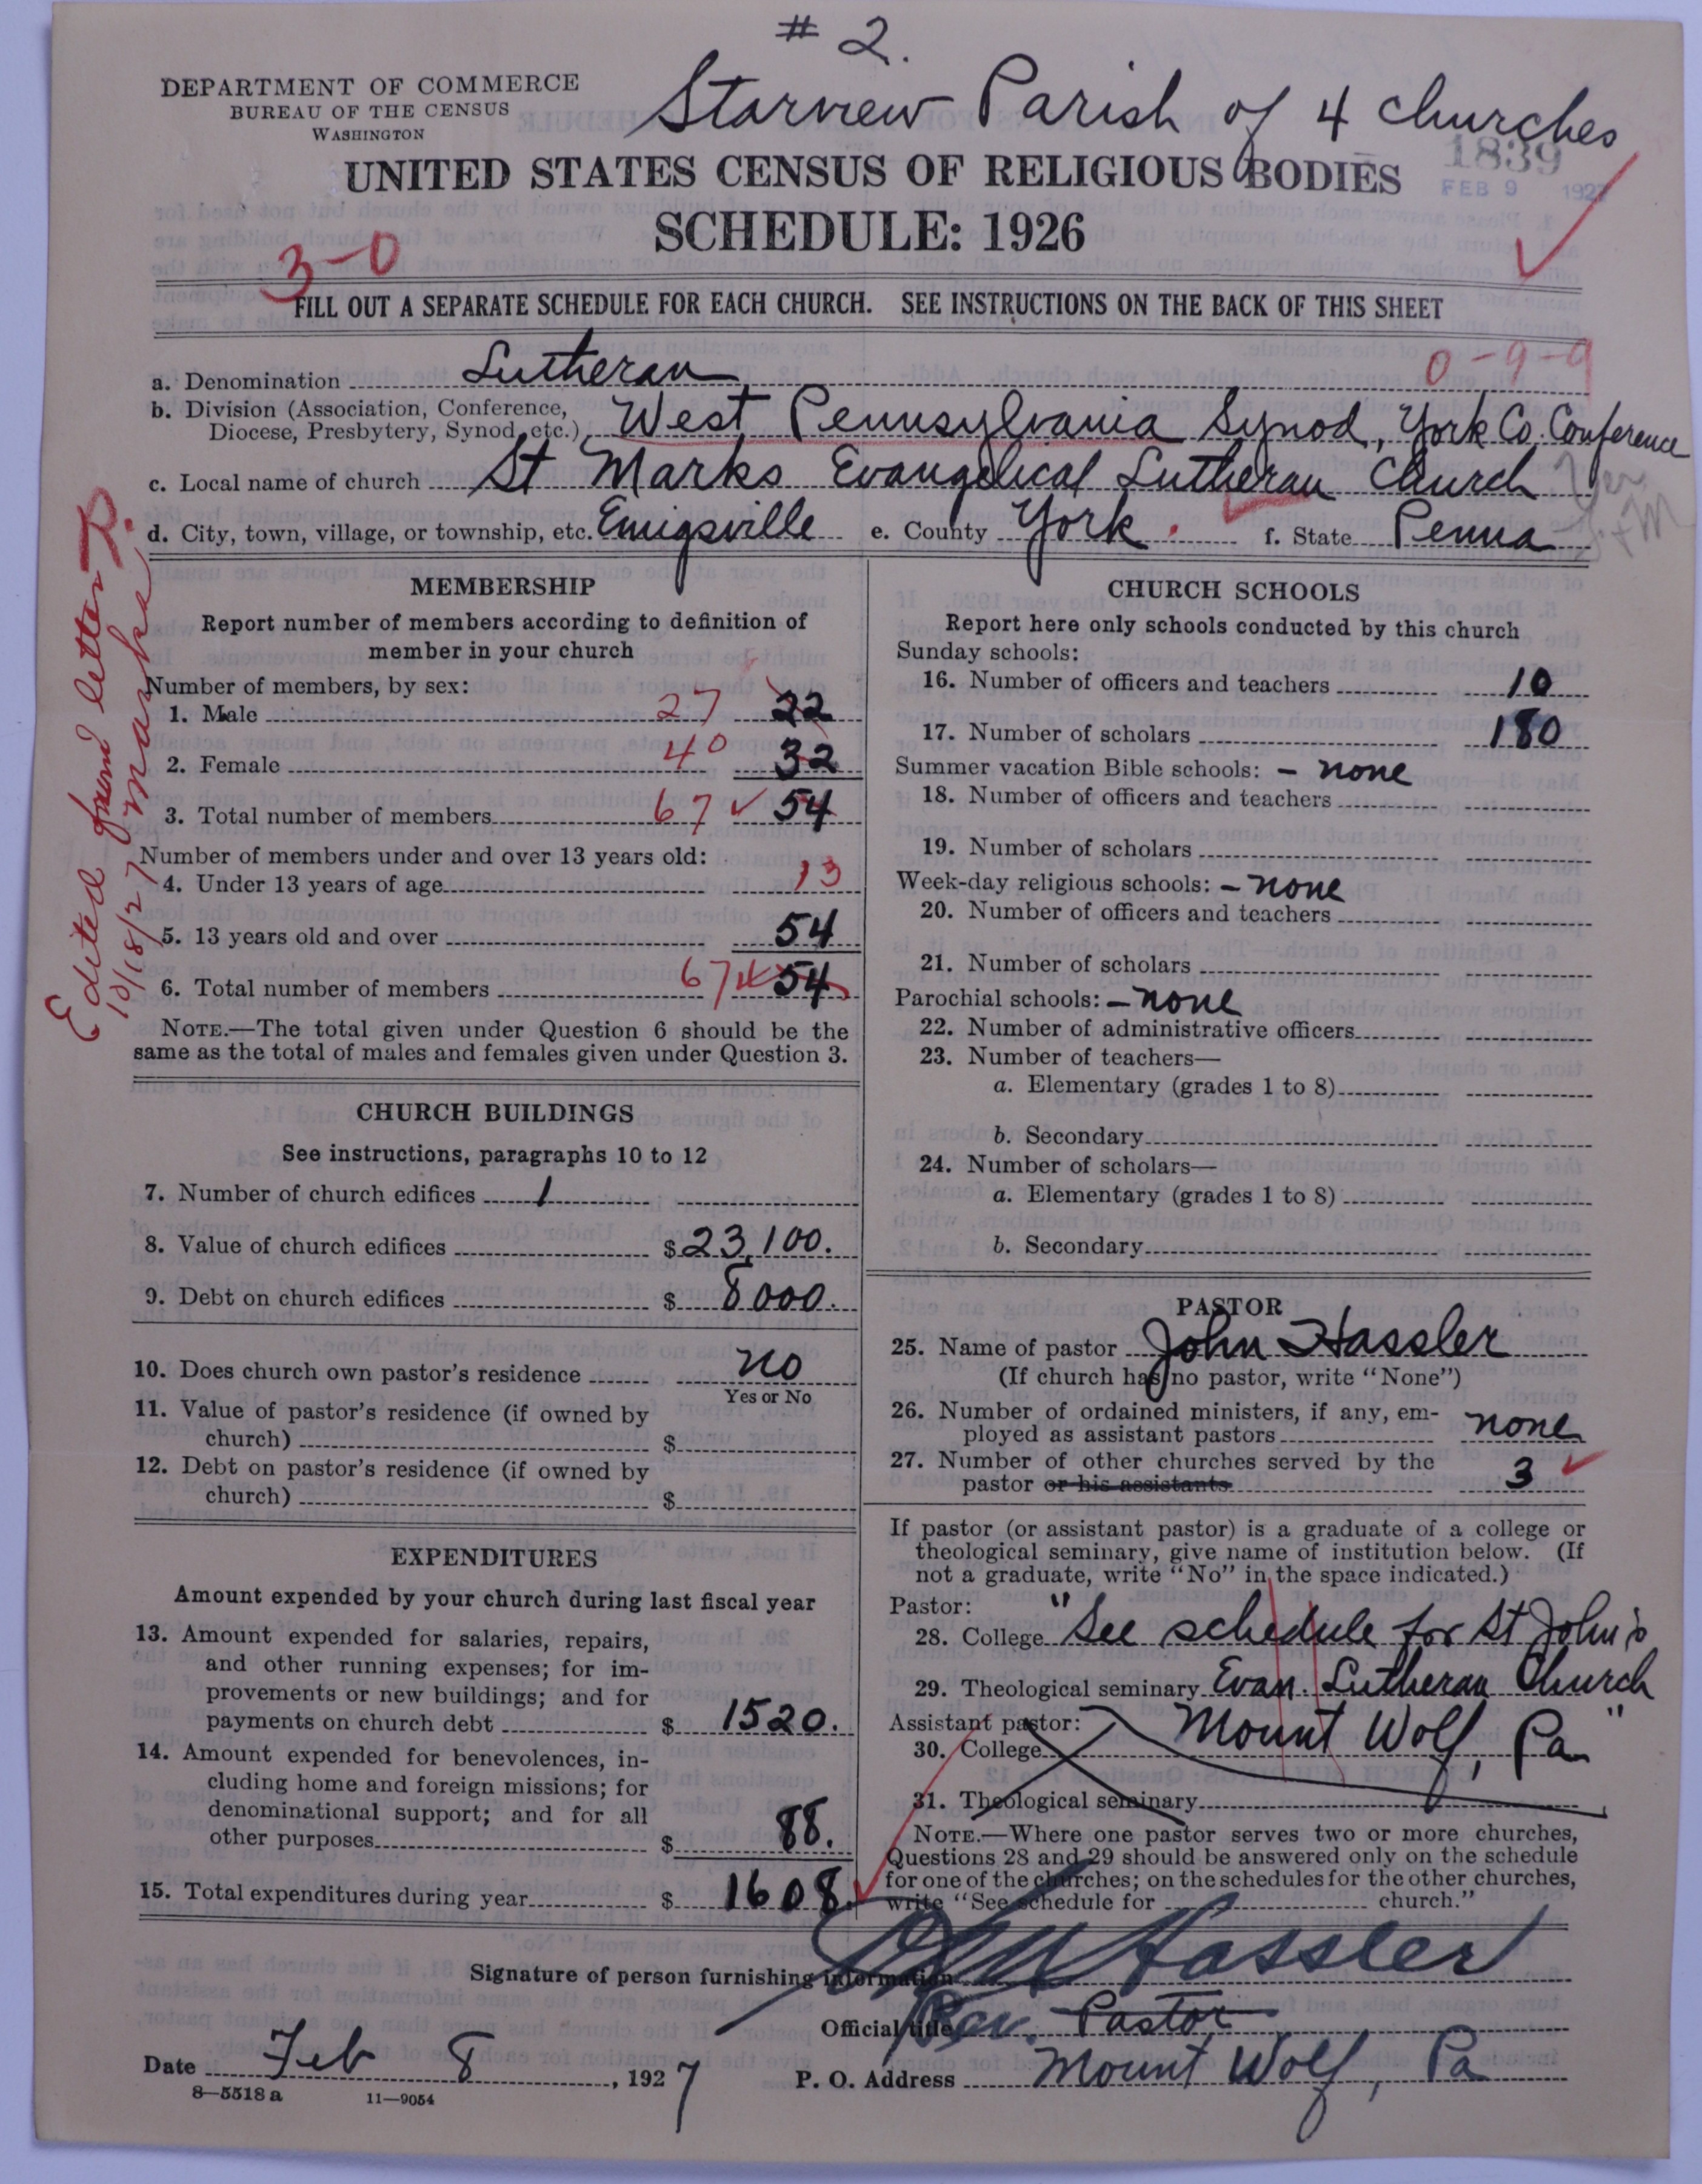 # 2.
Starview Parish of 4 churches
DEPARTMENT OF COMMERCE
BUREAU OF THE CENSUS
WASHINGTON
1839
FEB 9 1927
UNITED STATES CENSUS OF RELIGIOUS BODIES
SCHEDULE: 1926
3-0
FILL OUT A SEPARATE SCHEDULE FOR EACH CHURCH. SEE INSTRUCTIONS ON THE BACK OF THIS SHEET
0-9-9
a. Denomination Lutheran
b. Division (Association, Conference, Diocese, Presbytery, Synod, etc.) West Pennsylvania Synod, York Co. Conference
c. Local name of church St Marks Evangelical Lutheran Church
d. City, town, village, or township, etc. Emigsville e. County York f. State Penna
Edited from letter R.
10/18/27 Marks
MEMBERSHIP
Report number of members according to definition of
member in your church
Number of members, by sex:
1. Male 27 22
2. Female 40 32
3. Total number of members 67 ✓ 54
Number of members under and over 13 years old:
4. Under 13 years of age 13
5. 13 years old and over 54
6. Total number of members 67 54
NOTE.—The total given under Question 6 should be the
same as the total of males and females given under Question 3.
CHURCH BUILDINGS
See instructions, paragraphs 10 to 12
7. Number of church edifices 1
8. Value of church edifices $ 23,100.
9. Debt on church edifices $ 8000.
10. Does church own pastor's residence no
Yes or No
11. Value of pastor's residence (if owned by
church) $
12. Debt on pastor's residence (if owned by
church) $
EXPENDITURES
Amount expended by your church during last fiscal year
13. Amount expended for salaries, repairs,
and other running expenses; for im-
provements or new buildings; and for
payments on church debt $ 1520.
14. Amount expended for benevolences, in-
cluding home and foreign missions; for
denominational support; and for all
other purposes $ 88.
15. Total expenditures during year $ 1608.
CHURCH SCHOOLS
Report here only schools conducted by this church
Sunday schools:
16. Number of officers and teachers 10
17. Number of scholars 180
Summer vacation Bible schools: - none
18. Number of officers and teachers
19. Number of scholars
Week-day religious schools: - none
20. Number of officers and teachers
21. Number of scholars
Parochial schools: - none
22. Number of administrative officers
23. Number of teachers—
a. Elementary (grades 1 to 8)
b. Secondary
24. Number of scholars—
a. Elementary (grades 1 to 8)
b. Secondary
PASTOR
25. Name of pastor John Hassler
(If church has no pastor, write "None")
26. Number of ordained ministers, if any, em-
ployed as assistant pastors none
27. Number of other churches served by the
pastor or his assistants 3
If pastor (or assistant pastor) is a graduate of a college or
theological seminary, give name of institution below. (If
not a graduate, write "No" in the space indicated.)
Pastor:
28. College "See schedule for St John's
29. Theological seminary Evan. Lutheran Church
Assistant pastor: Mount Wolf, Pa"
30. College
31. Theological seminary
NOTE.—Where one pastor serves two or more churches,
Questions 28 and 29 should be answered only on the schedule
for one of the churches; on the schedules for the other churches,
write "See schedule for church."
Signature of person furnishing information Hassler
Official title Rev. Pastor
Date Feb 8, 1927
P. O. Address Mount Wolf, Pa
8—5518 a
11—9054